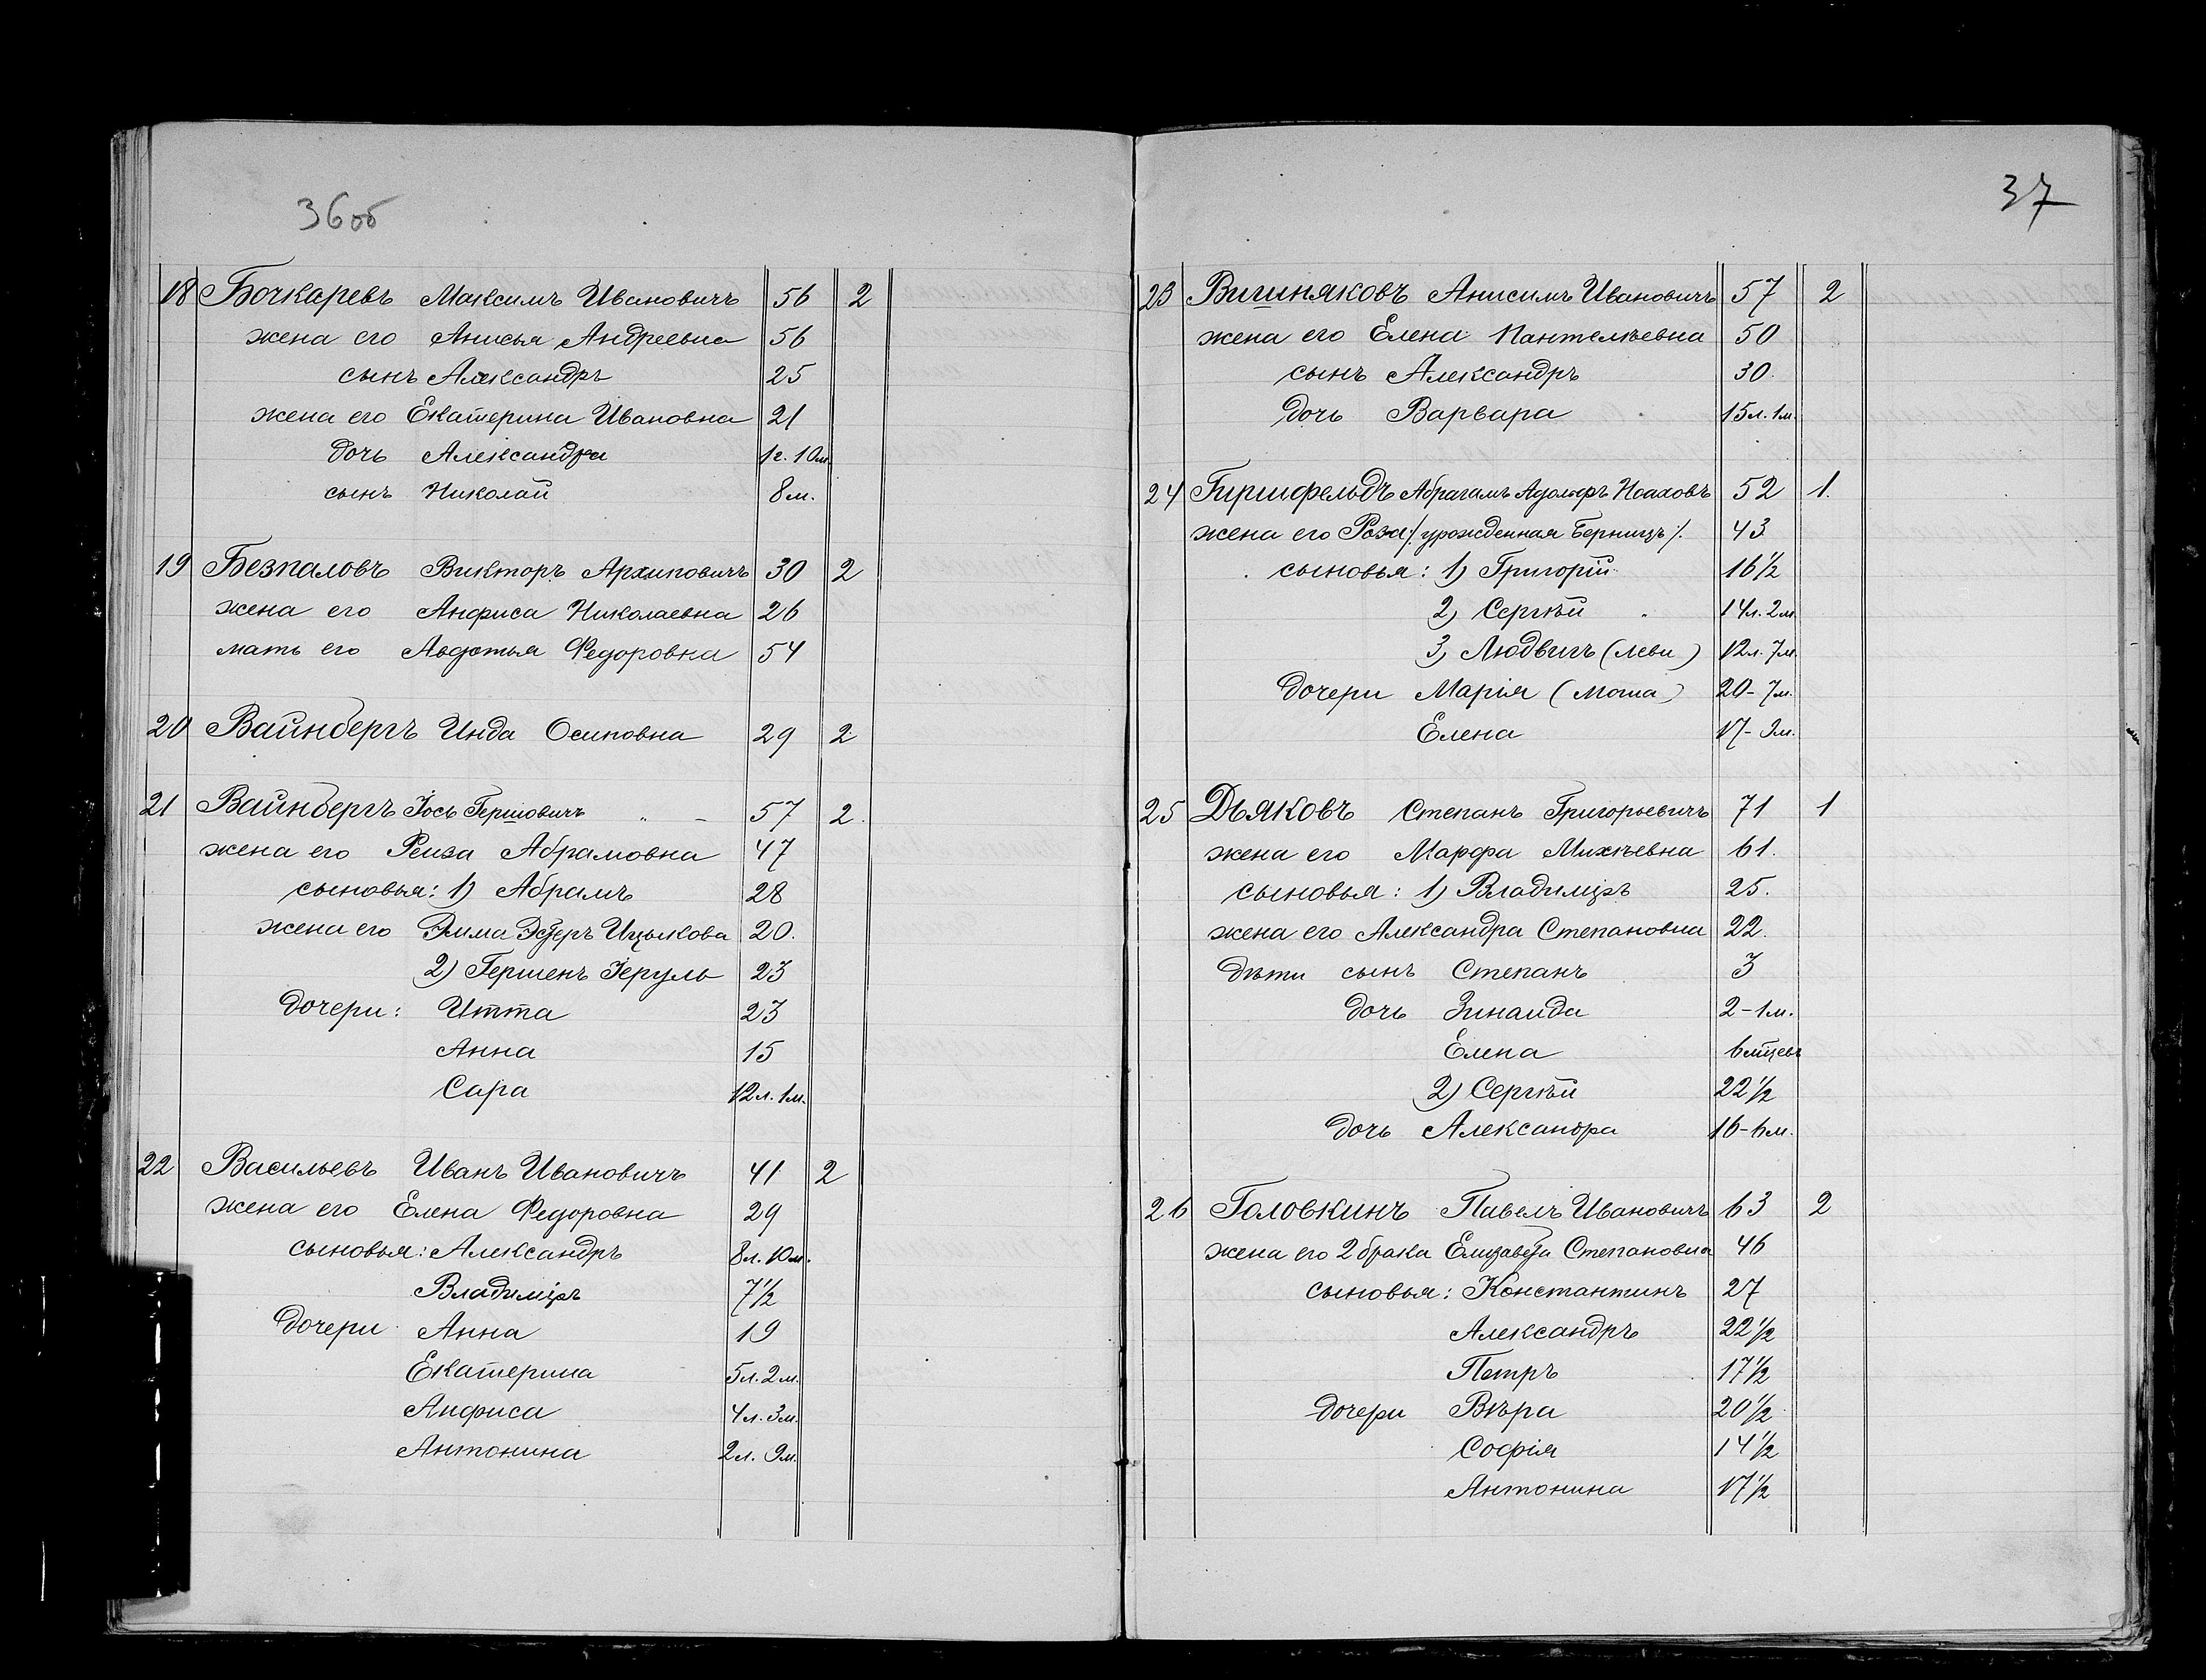 36об
18 Бочкаревъ Максимъ Ивановичъ 56 2
жена его Анисья Андреевна 56
сынъ Александръ 25
жена его Екатерина Ивановна 21
дочь Александра 1г. 10м.
сынъ Николай 8м.
19 Безпаловъ Викторъ Архиповичъ 30 2
жена его Анфиса Николаевна 26
мать его Авдотья Федоровна 54
20 Вайнбергъ Инда Осиповна 29 2
21 Вайнбергъ Іось Гершовичъ 57 2.
жена его Рейза Абрамовна 47
сыновья: 1) Абрамъ 28
жена его Эстеръ Ицыкова 20.
2) Гершенъ 23
дочери: Итта 23
Анна 15
Сара 12л. 1м.
22 Васильевъ Иванъ Ивановичъ 41 2
жена его Елена Федоровна 29
сыновья: Александръ 8л. 10м.
Владиміръ 7½
дочери Анна 19
Екатерина 5л. 2м.
Анфиса 4л. 3м.
Антонина 2л. 9м.
37
23 Вишняковъ Анисимъ Ивановичъ 57 2
жена его Елена Пантелѣевна 50
сынъ Александръ 30.
дочь Варвара 15л. 1м.
24 Гиршфельдъ Абрагамъ Адольфъ Исааховъ 52 1.
жена его Роза /: урожденная Берницъ :/. 43
сыновья: 1) Григорій 16½
2) Сергѣй 14л. 2м.
3) Людвигъ (Леви) 12л. 7м.
дочери Марія (Моша) 20- 7м.
Елена 17- 9м.
25 Дьяковъ Степанъ Григорьевичъ 71 1
жена его Марфа Михѣевна 61.
сыновья: 1) Владиміръ 25.
жена его Александра Степановна 22.
дѣти сынъ Степанъ 3
дочь Зинаида 2-1м.
Елена 6 мѣцевъ
2) Сергѣй 22½
дочь Александра 16-6м.
26 Головкинъ Павелъ Ивановичъ 63 2
жена его 2 брака Елизавета Степановна 46
сыновья: Константинъ 27
Александръ 22½
Петръ 17½
дочери Вѣра 20½
Софія 14½
Антонина 17½